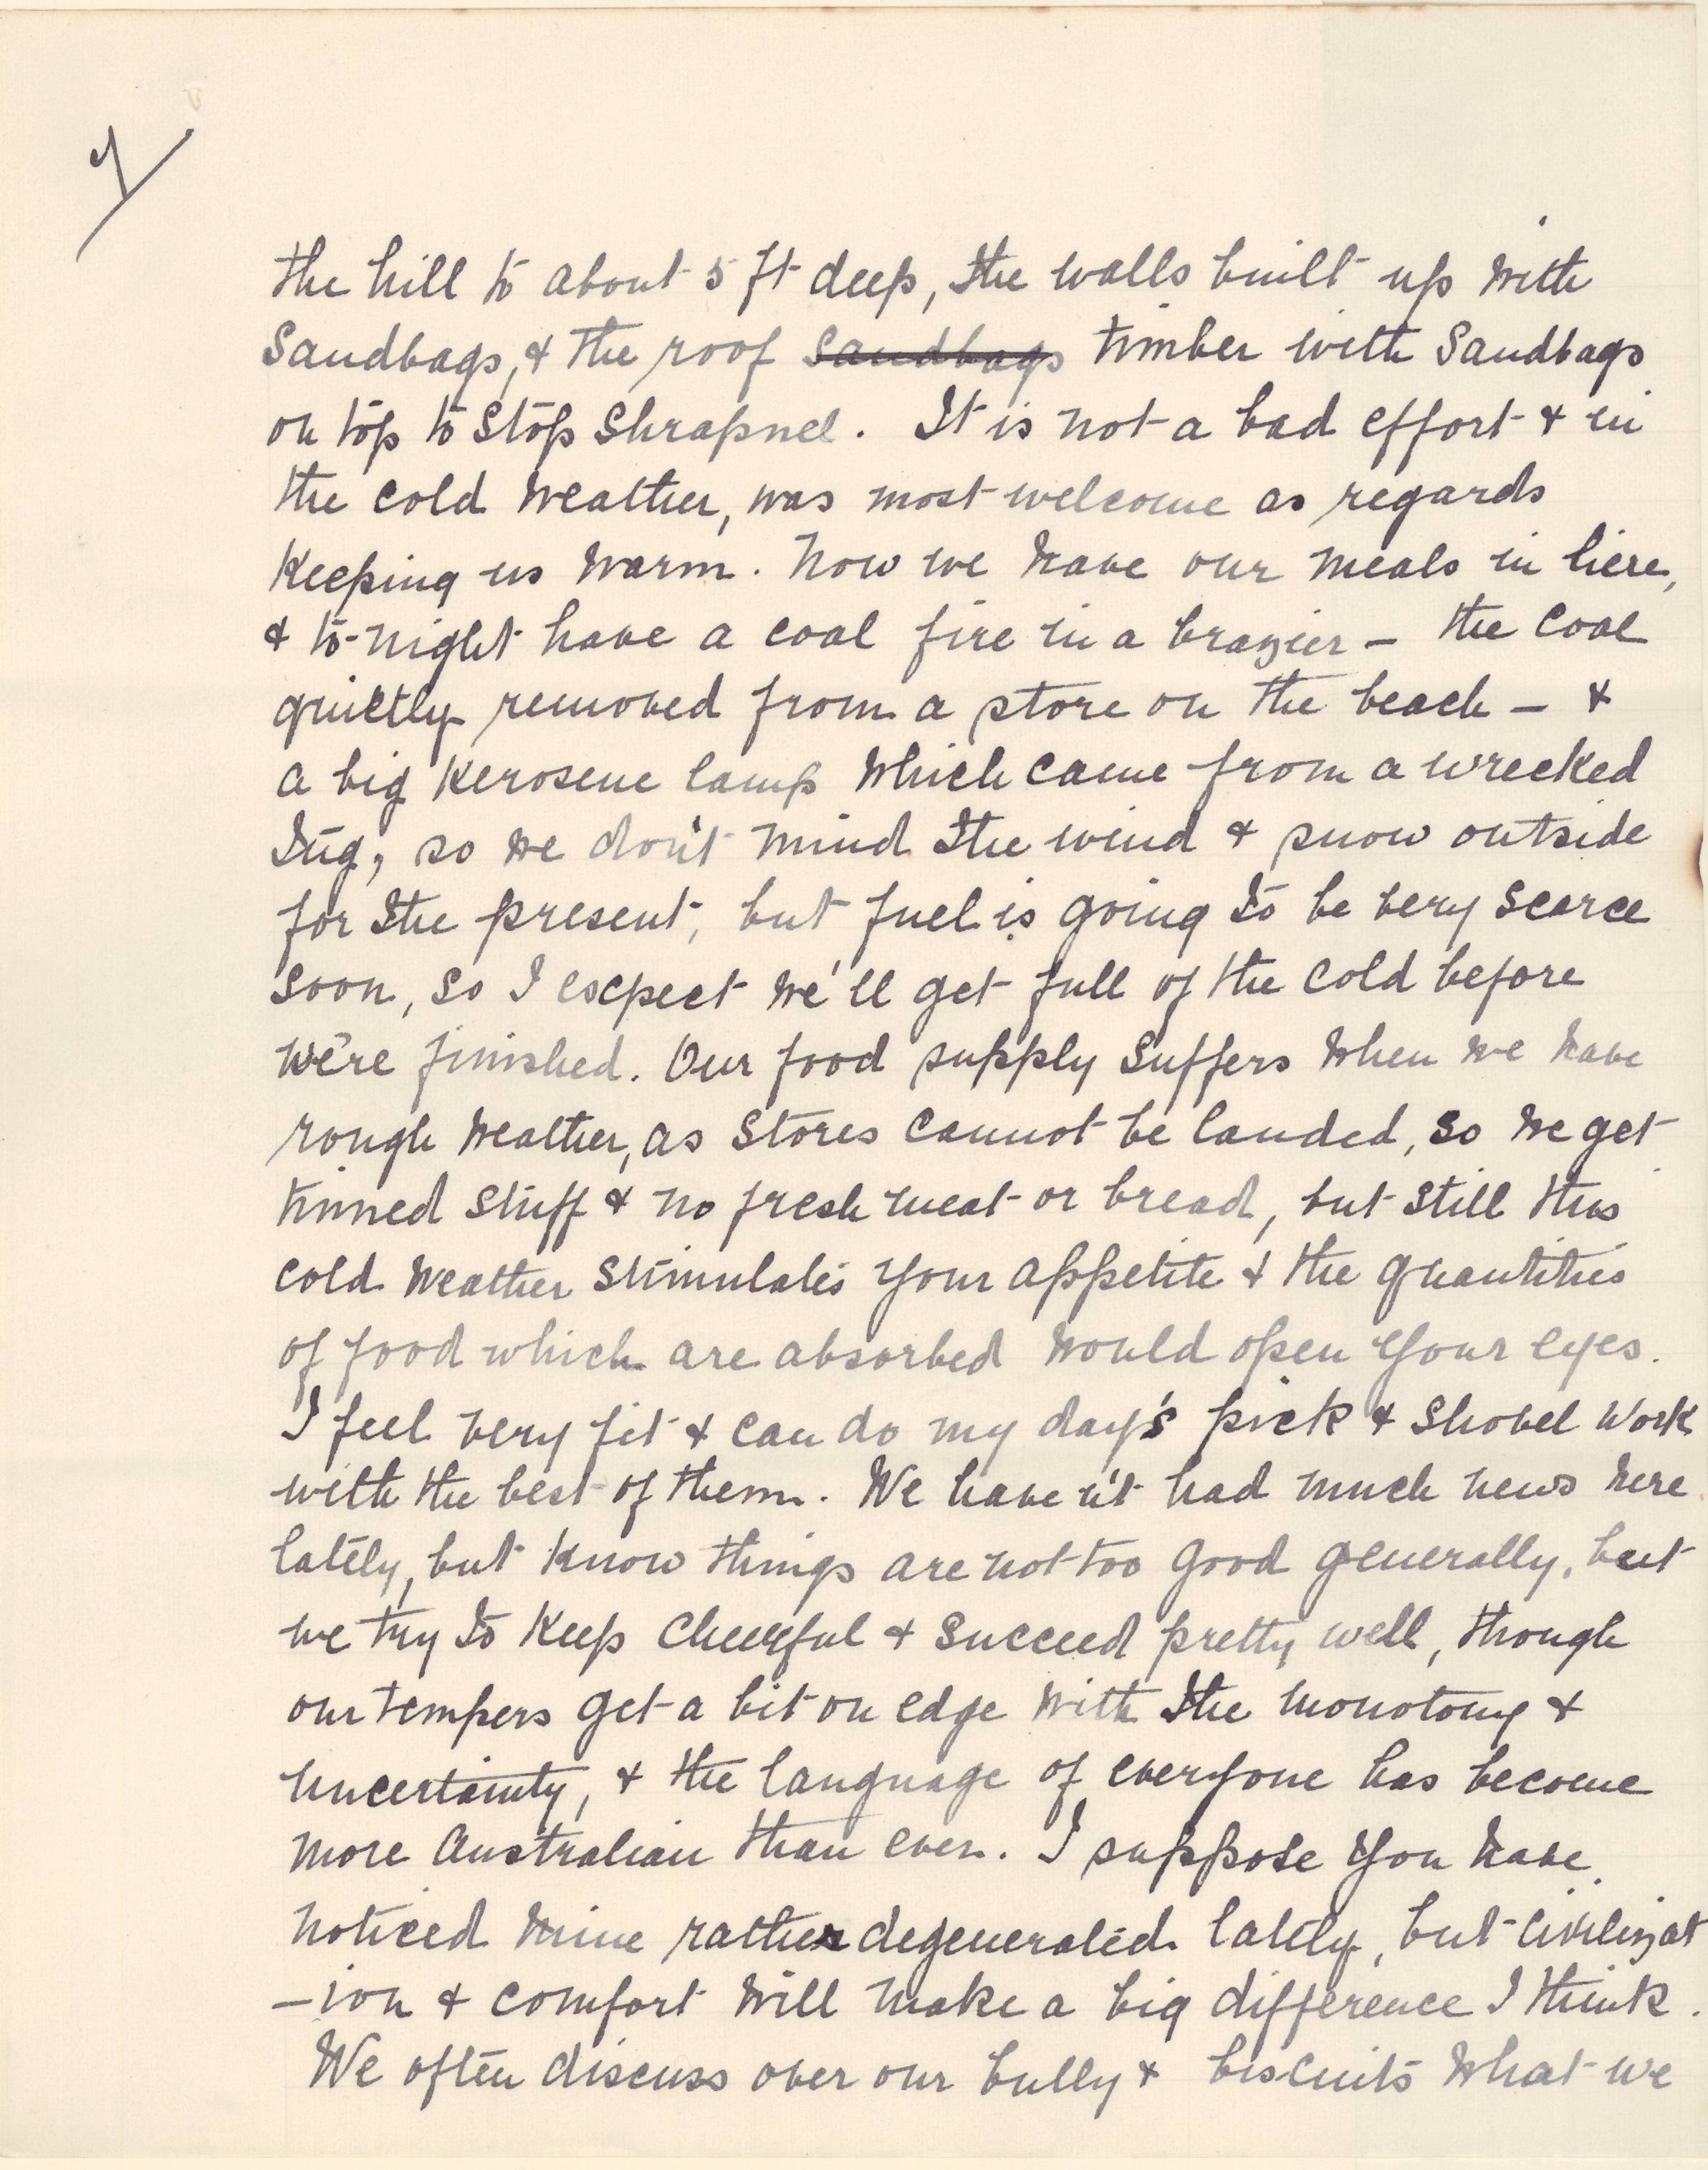 the hill to about 5 ft deep, the walls built up with
Sandbags, & the roof Sandbags timber with Sandbags
on top to stop Shrapnel. It is not a bad effort & in
the cold weather, was most welcome as regards
Keeping us warm. Now we have our meals in here,
& to-night have a coal fire in a brazier – the coal
quietly removed from a store on the beach – &
a big Kerosene lamp which came from a wrecked
Tug, so we don't mind the wind & snow outside
for the present, but fuel is going to be very scarce
soon, so I expect we'll get full of the cold before
we're finished. Our food supply suffers when we have
rough weather, as stores cannot be landed, so we get
tinned stuff & no fresh meat or bread, but still this
cold weather stimulates your appetite & the quantities
of food which are absorbed would open your eyes.
I feel very fit & can do my day's pick & shovel work
with the best of them. We haven't had much news here
lately, but know things are not too good generally, but
we try to keep cheerful & succeed pretty well, though
our tempers get a bit on edge with the monotony &
uncertainty, & the language of everyone has become
more Australian than ever. I suppose you have
noticed mine rather degenerated lately, but civilizat
–ion & comfort will make a big difference I think.
We often discuss over our bully & biscuits what we